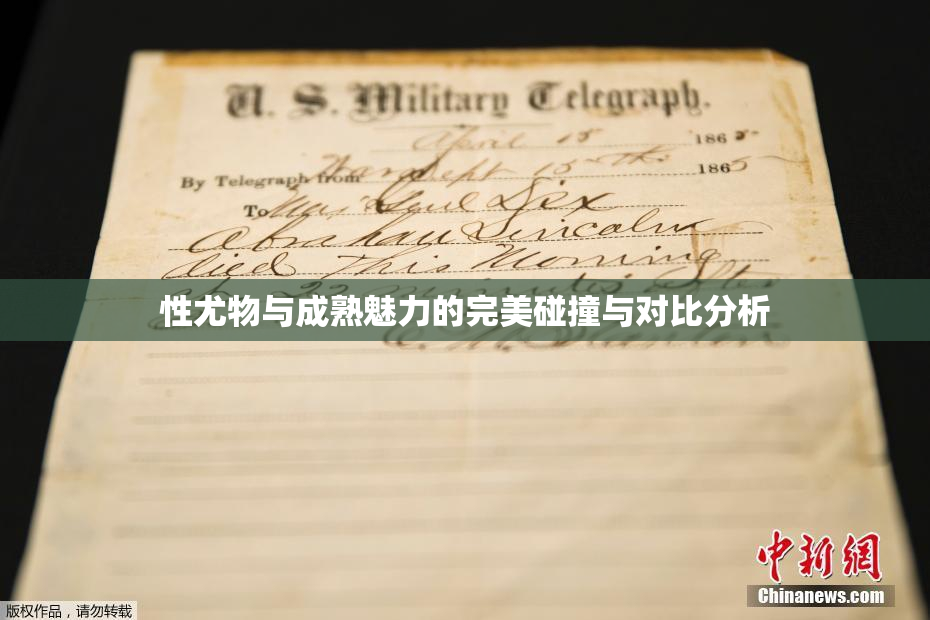 U. S. Military Telegraph.
April 15 1865
By Telegraph from War Dept 15th 1865
To Maj Genl Dix
Abraham Lincoln
died This Morning
at 22 minutes after
性尤物与成熟魅力的完美碰撞与对比分析
E. M. Stanton
中新網
Chinanews.com
版权作品，请勿转载